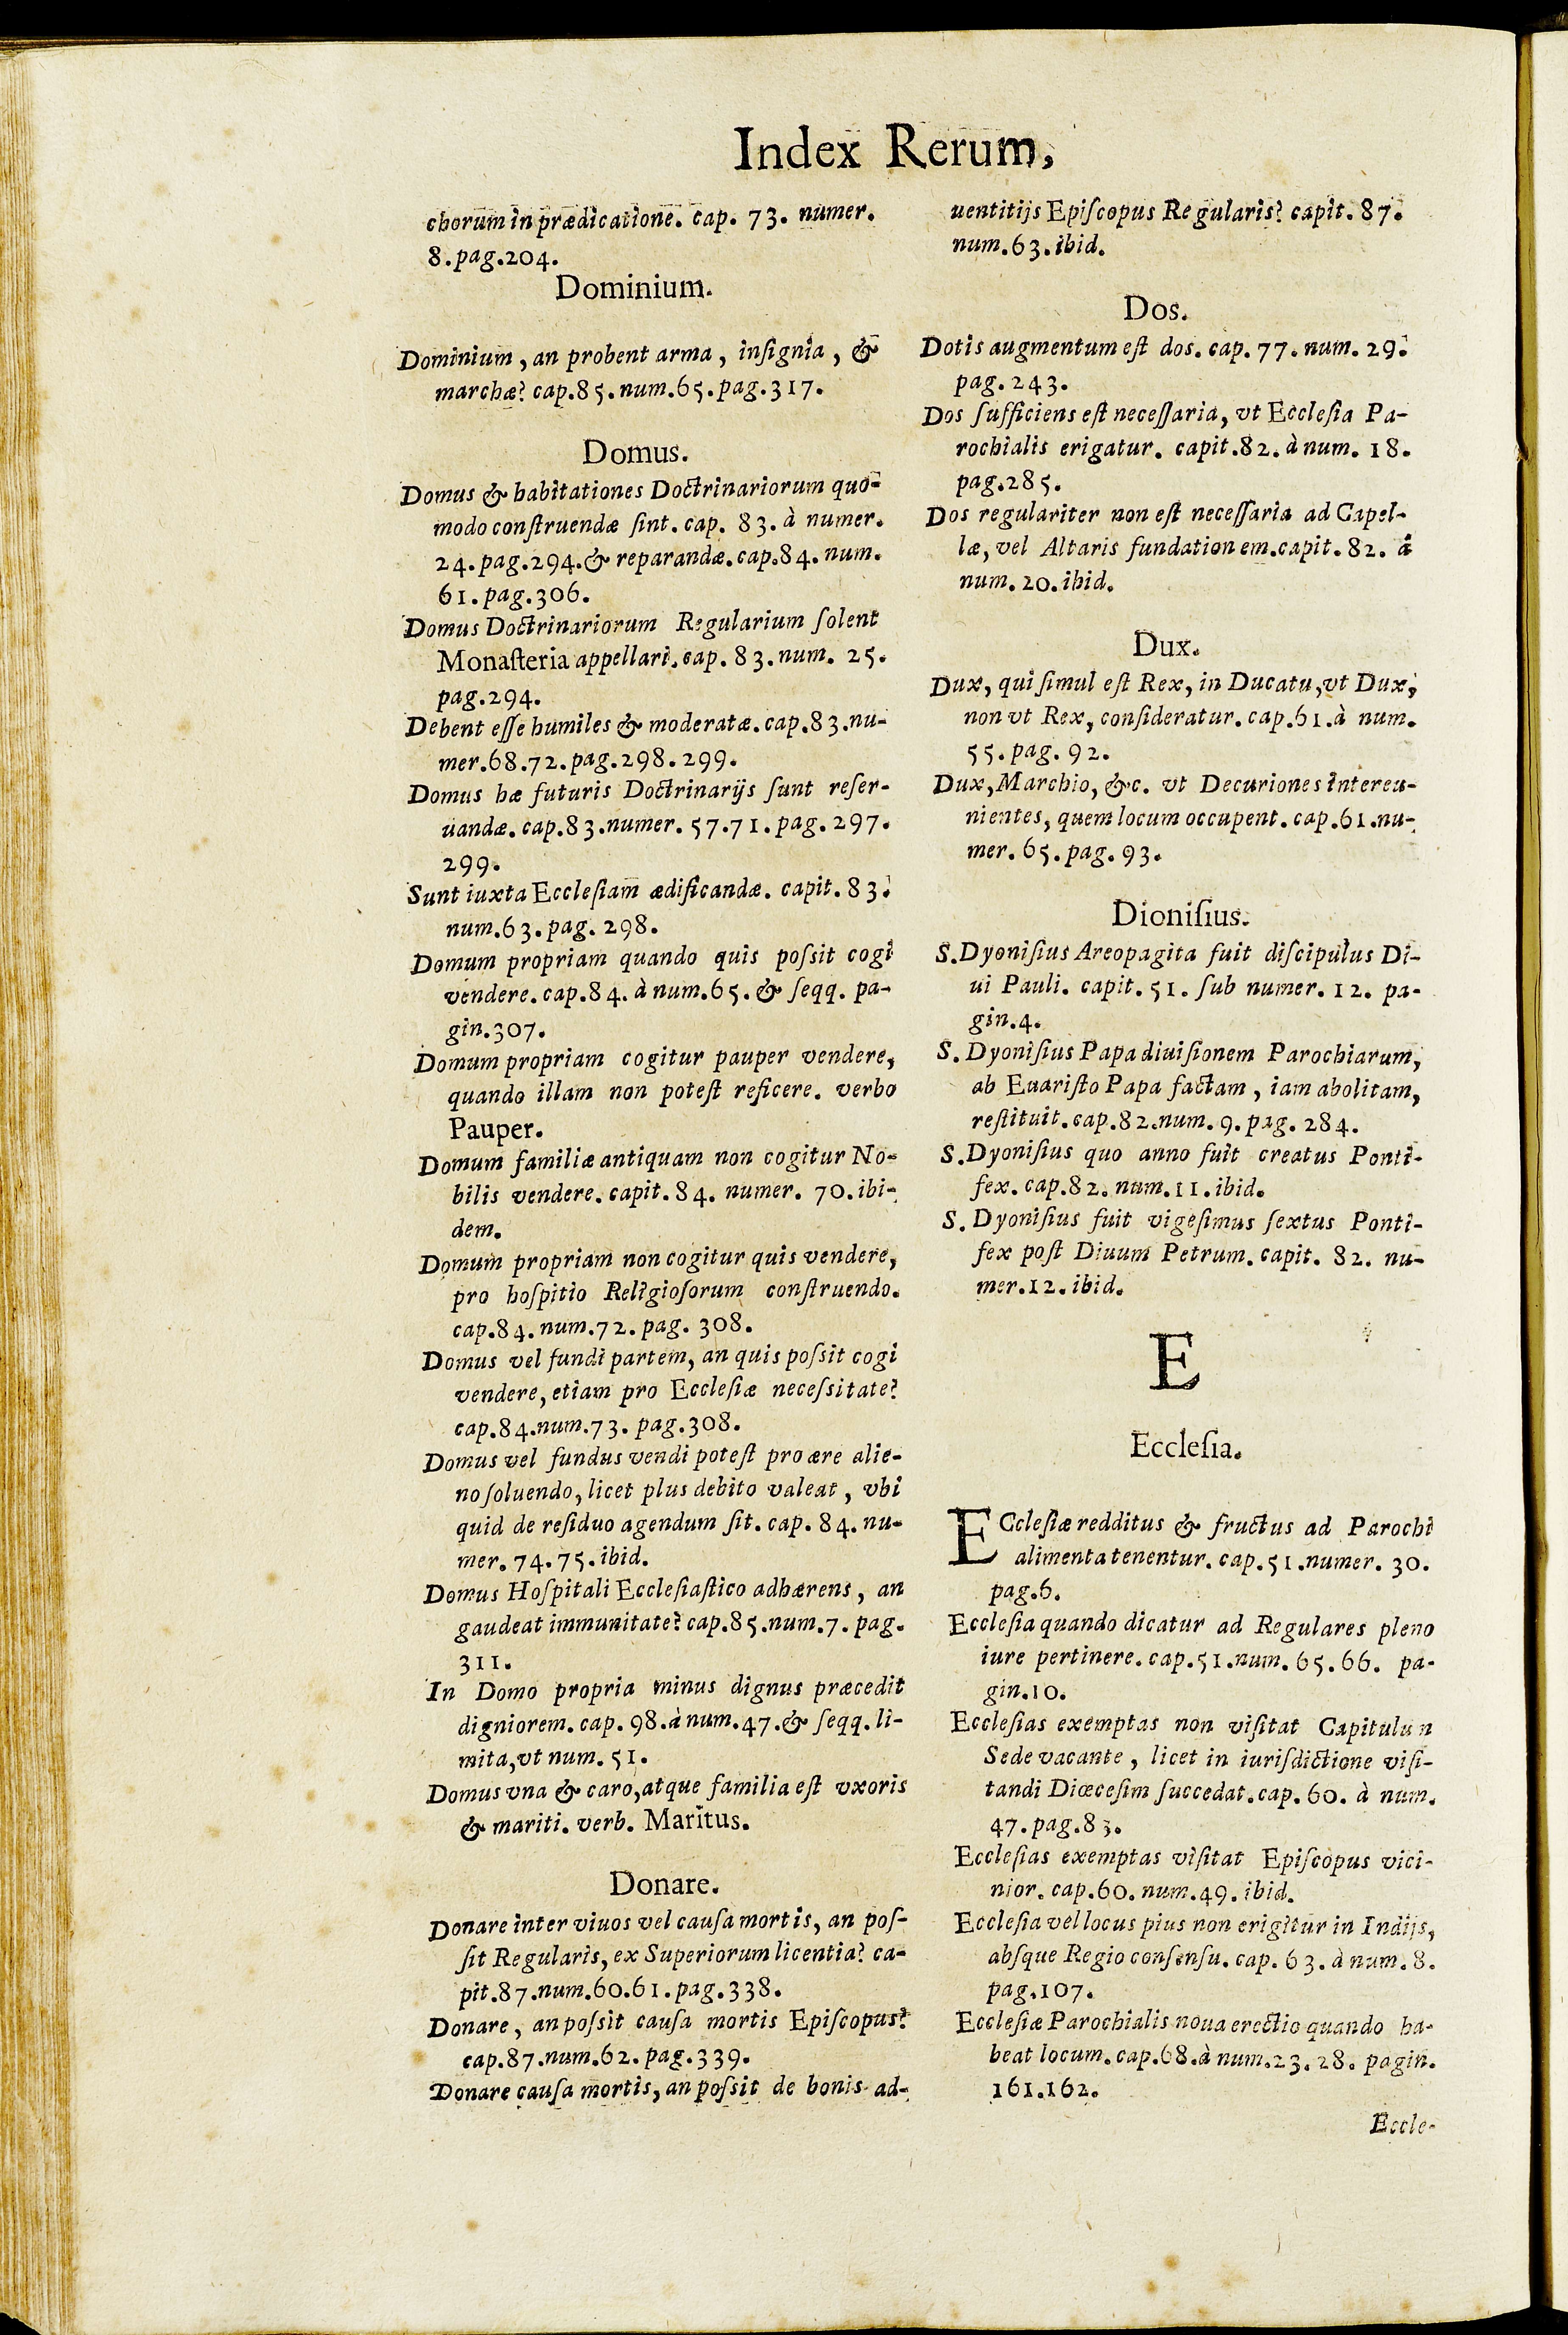 Index Rerum,
chorum in prædicatione. cap. 73. numer.
8. pag. 204.
Dominium.
Dominium, an probent arma, inſignia, &
marchæ? cap. 85. num. 65. pag. 317.
Domus.
Domus & habitationes Doctrinariorum quo-
modo conſtruendæ ſint. cap. 83. à numer.
24. pag. 294. & reparandæ. cap. 84. num.
61. pag. 306.
Domus Doctrinariorum Regularium ſolent
Monaſteria appellari. cap. 83. num. 25.
pag. 294.
Debent eſſe humiles & moderatæ. cap. 83. nu-
mer. 68. 72. pag. 298. 299.
Domus hæ futuris Doctrinarijs ſunt reſer-
uandæ. cap. 83. numer. 57. 71. pag. 297.
299.
Sunt iuxta Eccleſiam ædificandæ. capit. 83.
num. 63. pag. 298.
Domum propriam quando quis poſsit cogi
vendere. cap. 84. à num. 65. & ſeqq. pa-
gin. 307.
Domum propriam cogitur pauper vendere,
quando illam non poteſt reficere. verbo
Pauper.
Domum familiæ antiquam non cogitur No-
bilis vendere. capit. 84. numer. 70. ibi-
dem.
Domum propriam non cogitur quis vendere,
pro hoſpitio Religioſorum conſtruendo.
cap. 84. num. 72. pag. 308.
Domus vel fundi partem, an quis poſsit cogi
vendere, etiam pro Eccleſiæ neceſsitate?
cap. 84. num. 73. pag. 308.
Domus vel fundus vendi poteſt pro ære alie-
no ſoluendo, licet plus debito valeat, vbi
quid de reſiduo agendum ſit. cap. 84. nu-
mer. 74. 75. ibid.
Domus Hoſpitali Eccleſiaſtico adhærens, an
gaudeat immunitate? cap. 85. num. 7. pag.
311.
In Domo propria minus dignus præcedit
digniorem. cap. 98. à num. 47. & ſeqq. li-
mita, vt num. 51.
Domus vna & caro, atque familia eſt vxoris
& mariti. verb. Maritus.
Donare.
Donare inter viuos vel cauſa mortis, an poſ-
ſit Regularis, ex Superiorum licentia? ca-
pit. 87. num. 60. 61. pag. 338.
Donare, an poſsit cauſa mortis Epiſcopus?
cap. 87. num. 62. pag. 339.
Donare cauſa mortis, an poſsit de bonis ad-
uentitijs Epiſcopus Regularis? capit. 87.
num. 63. ibid.
Dos.
Dotis augmentum eſt dos. cap. 77. num. 29.
pag. 243.
Dos ſufficiens eſt neceſſaria, vt Eccleſia Pa-
rochialis erigatur. capit. 82. à num. 18.
pag. 285.
Dos regulariter non eſt neceſſaria ad Capel-
læ, vel Altaris fundation em. capit. 82. à
num. 20. ibid.
Dux.
Dux, qui ſimul eſt Rex, in Ducatu, vt Dux,
non vt Rex, conſideratur. cap. 61. à num.
55. pag. 92.
Dux, Marchio, &c. vt Decuriones intereu-
nientes, quem locum occupent. cap. 61. nu-
mer. 65. pag. 93.
Dioniſius.
S. Dyoniſius Areopagita fuit diſcipulus Di-
ui Pauli. capit. 51. ſub numer. 12. pa-
gin. 4.
S. Dyoniſius Papa diuiſionem Parochiarum,
ab Euariſto Papa factam, iam abolitam,
reſtituit. cap. 82. num. 9. pag. 284.
S. Dyoniſius quo anno fuit creatus Ponti-
fex. cap. 82. num. 11. ibid.
S. Dyoniſius fuit vigeſimus ſextus Ponti-
fex poſt Diuum Petrum. capit. 82. nu-
mer. 12. ibid.
E
Eccleſia.
ECcleſiæ redditus & fructus ad Parochi
alimenta tenentur. cap. 51. numer. 30.
pag. 6.
Eccleſia quando dicatur ad Regulares pleno
iure pertinere. cap. 51. num. 65. 66. pa-
gin. 10.
Eccleſias exemptas non viſitat Capitulum
Sede vacante, licet in iuriſdictione viſi-
tandi Diœceſim ſuccedat. cap. 60. à num.
47. pag. 83.
Eccleſias exemptas viſitat Epiſcopus vici-
nior. cap. 60. num. 49. ibid.
Eccleſia vel locus pius non erigitur in Indijs,
abſque Regio conſenſu. cap. 63. à num. 8.
pag. 107.
Eccleſiæ Parochialis noua erectio quando ha-
beat locum. cap. 68. à num. 23. 28. pagin.
161. 162.
Eccle-